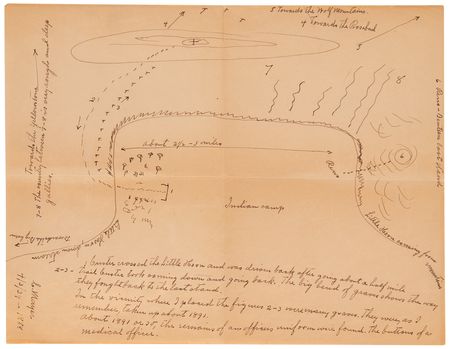 5 Towards the Wolf Mountains.
4 Towards the Rosebud
4
5
7
8
6 Reno-Benteen last stand
6
Towards the Yellowstone
7-8 The country between 7-8 is very rough and deep
gullies.
2
3
about 2 1/2 - 3 miles
Reno
1
Indian camp
Little Horn coming from
mountains
Little Horn down stream
1 Custer crossed the Little Horn and was driven back after going about a half mile
2-3 - Trail Custer took coming down and going back. The big bend of graves shows the way
they fought back to the last stand.
In the vicinity where I placed the figures 2-3 were many graves. They were, as I
remember, taken up about 1891.
About 1891 or 35, the remains of an officers uniform were found. The buttons of a
medical officer.